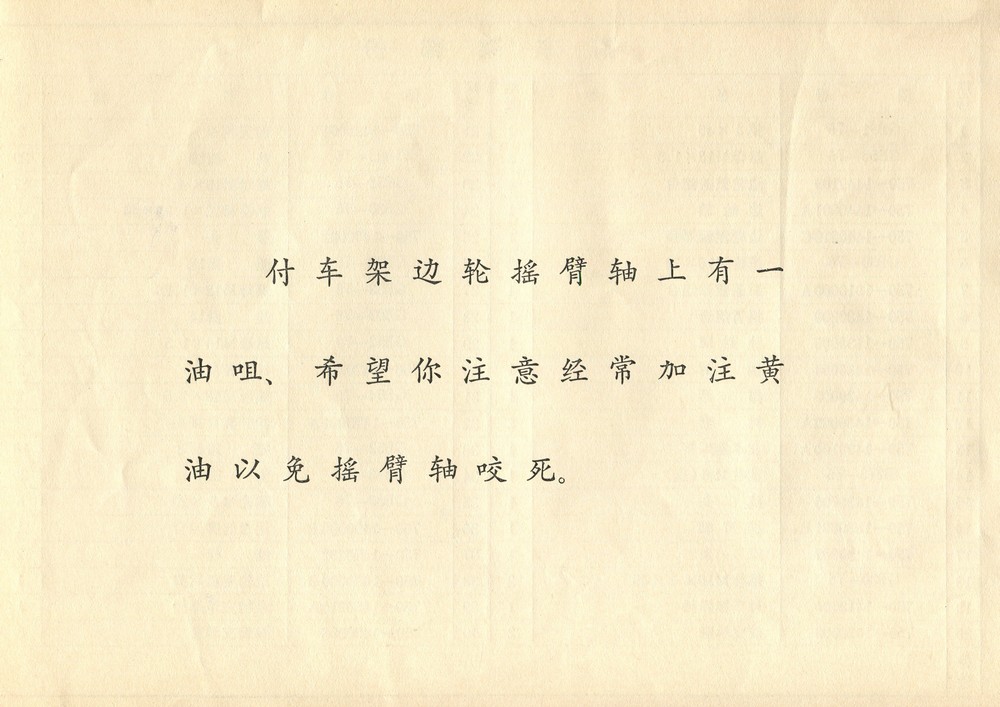 付车架边轮摇臂轴上有一
油咀、希望你注意经常加注黄
油以免摇臂轴咬死。